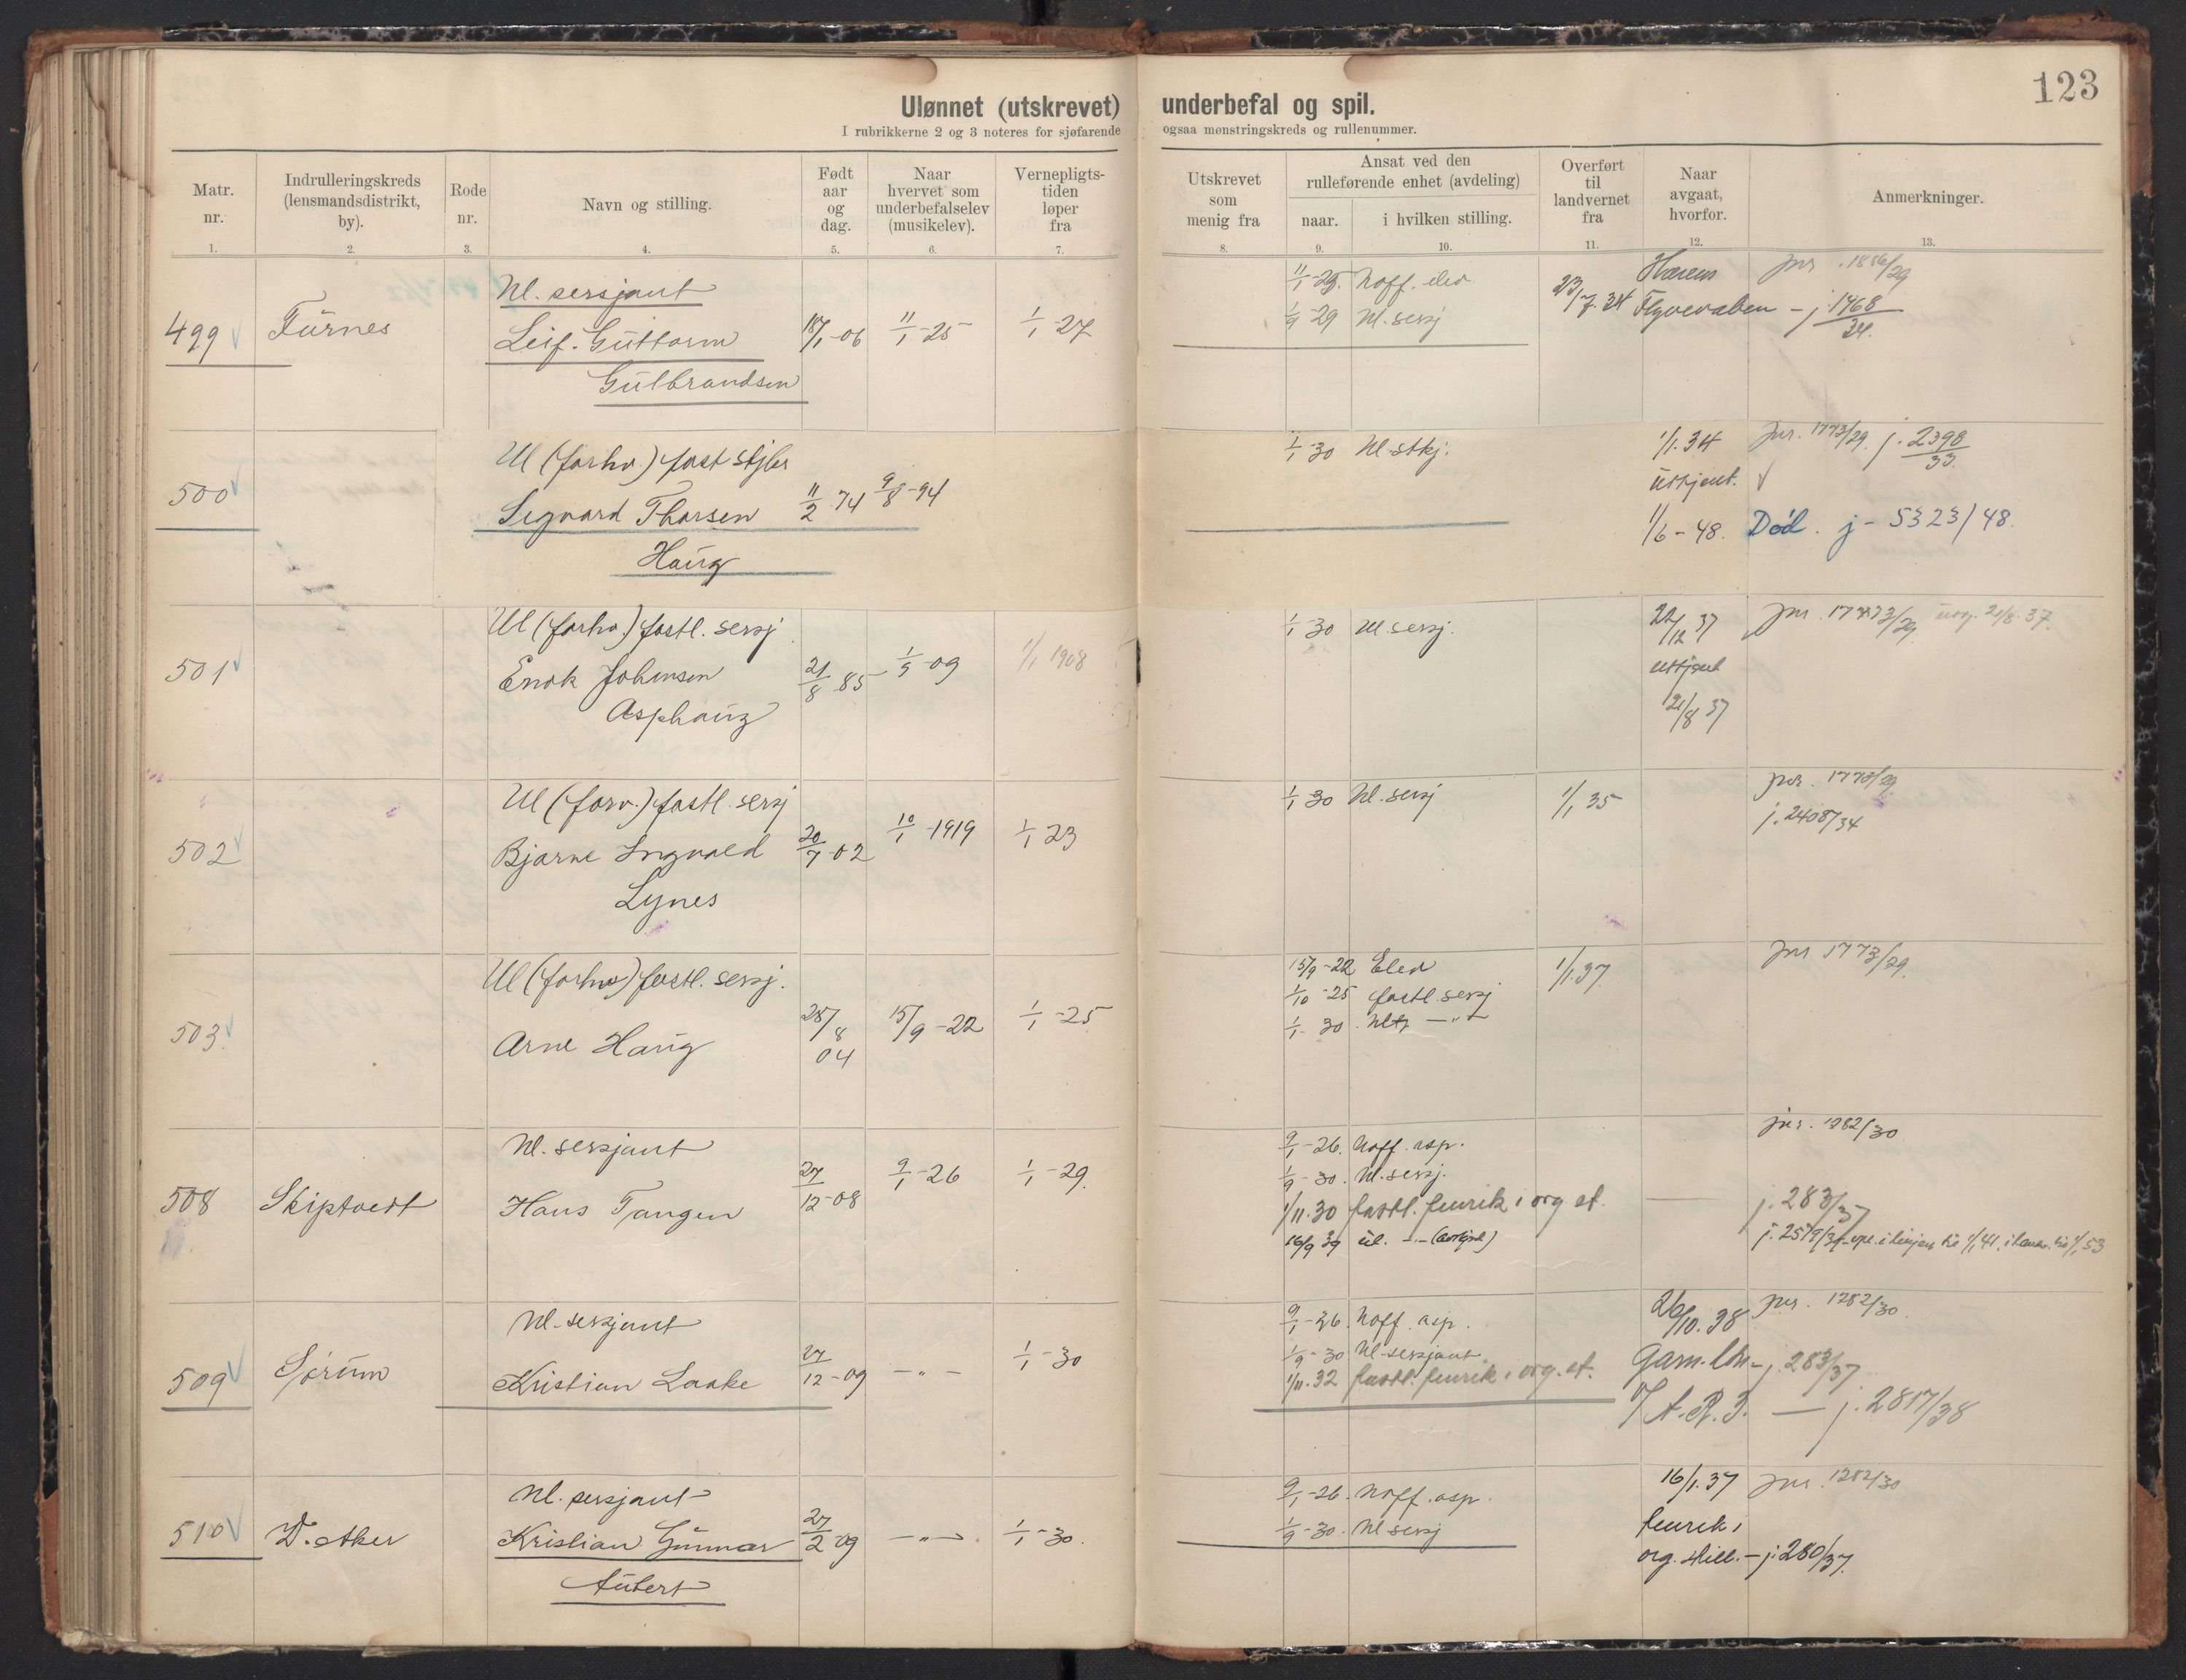 123
Ulønnet (utskrevet) underbefal og spil.
I rubrikkerne 2 og 3 noteres for sjøfarende ogsaa mønstringskreds og rullenummer.
Matr. nr.
Indrulleringskreds (lensmandsdistrikt, by).
Rode nr.
Navn og stilling.
Født aar og dag.
Naar hvervet som underbefalselev (musikelev).
Vernepligts-tiden løper fra
Utskrevet som menig fra
Ansat ved den rulleførende enhet (avdeling)
naar.
i hvilken stilling.
Overført til landvernet fra
Naar avgaat, hvorfor.
Anmerkninger.
1. 2. 3. 4. 5. 6. 7. 8. 9. 10. 11. 12. 13.
Ul. sersjant 11/1-25. Uoff. elev Hærens jnr. 1856/29
499 Furnes Leif Guttorm 18/1-06 11/1-25 1/1-27 1/9 29 Ul. sersj 23/7.34 Flyvevaben - j. 1468/34.
Gulbrandsen
Ul (forhv.) fast stkjbr 1/1 30 Ul. stkj. 1/1.34 Jnr. 1773/29. j. 2398/33.
500 Sigvard Thorsen 11/2 74 9/8-94 utkjent.
Haug 1/6-48. Død. j-5323/48.
Ul (forhv.) fastl. sersj 1/1 30 Ul. sersj. 22/12 37 Jnr. 1773/29. 21/8.37.
501 Enok Johansen 21/8 85 1/5-09 1/1 1908 uttjent
Asphaug 21/8 37
Ul (forv.) fastl. sersj 1/1 30 Ul. sersj 1/1 35 jnr. 1773/29.
502 Bjarne Ingvald 20/7-02 10/1-1919 1/1 23 j. 2408/34
Lynes
Ul (forhv) fastl. sersj. 15/9-22 Elev 1/1.37. Jnr 1773/29.
1/10-25 fastl. sersj
503. Arne Haug 28/8 04 15/9-22 1/1-25 1/1-30. Ul. -"-
Ul. sersjant 9/1-26. Uoff. asp. jnr. 1282/30
1/9-30. Ul. sersj.
508 Skiptvedt Hans Tangen 27/12-08 9/1-26 1/1-29. 1/11.30 fastl. fenrik i org et. j. 283/37
16/9 39 ul. -"- j. 2579/39
Ul. sersjant 9/1-26. Uoff. asp. 26/10.38 jnr. 1282/30.
1/9-30 Ul-sersjant.
509 Sørum Kristian Laake 27/12-09 -"- 1/1-30 1/11.32 fastl. fenrik i org. et. Garn. - j. 283/37
A.R.3. - j. 2817/38
Ul. sersjant 9/1-26. Uoff. asp. 16/1.37 jnr. 1282/30
510 V. Aker Kristian Gunnar 27/2-09 -"- 1/1-30. 1/9-30. Ul sersj fenrik i
Aubert org. still. - j. 280/37.